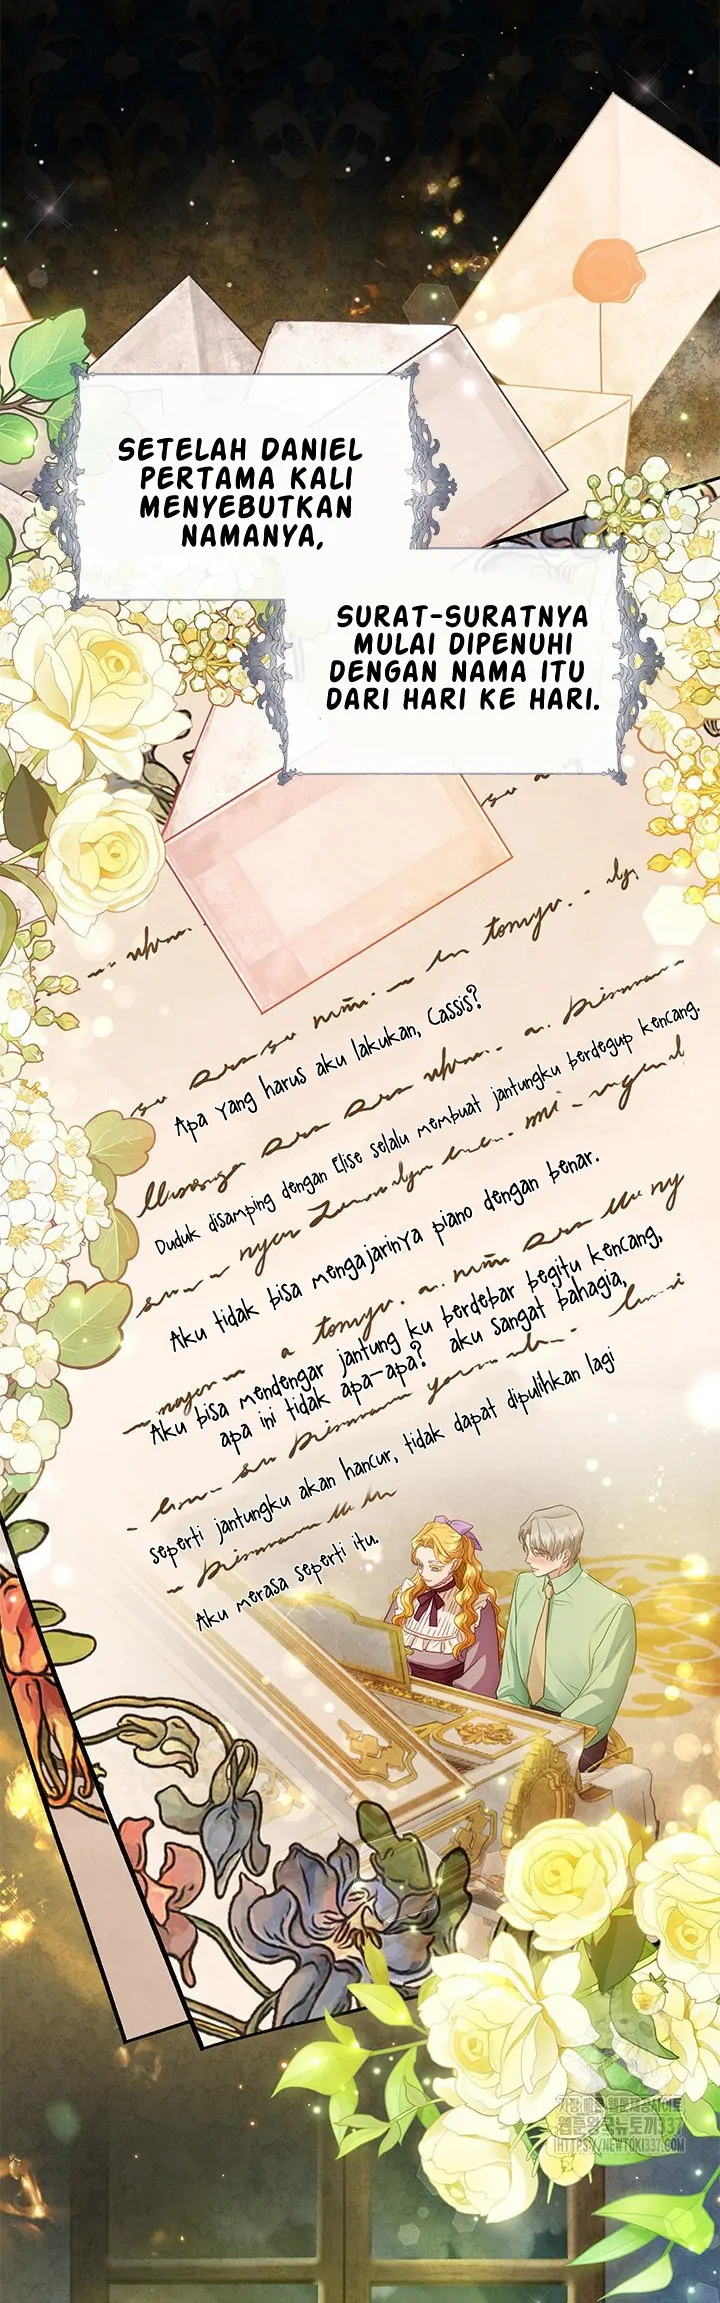 SETELAH DANIEL
PERTAMA KALI
MENYEBUTKAN
NAMANYA,
SURAT-SURATNYA
MULAI DIPENUHI
DENGAN NAMA ITU
DARI HARI KE HARI.
Apa yang harus aku lakukan, Cassis?
Duduk disamping dengan Elise selalu membuat jantungku berdegup kencang.
Aku tidak bisa mengajarinya piano dengan benar.
Aku bisa mendengar jantung ku berdebar begitu kencang,
apa ini tidak apa-apa? aku sangat bahagia,
seperti jantungku akan hancur, tidak dapat dipulihkan lagi
Aku merasa seperti itu.
HTTPS://NEWTOKI337.COM